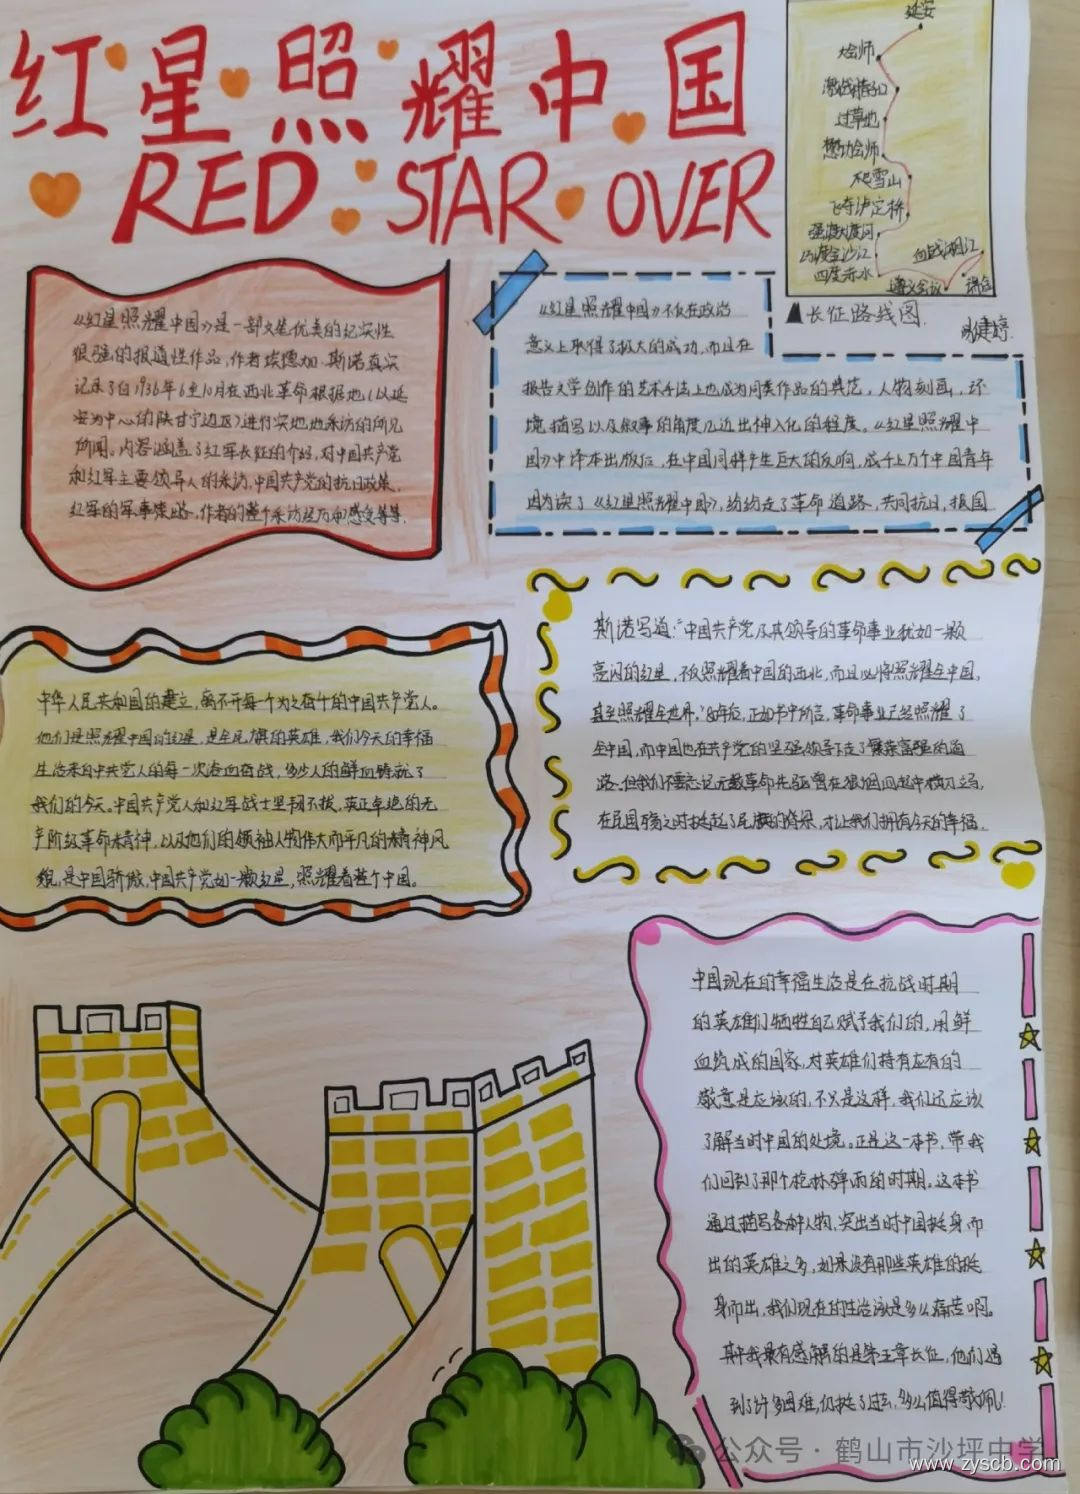 红星照耀中国
RED STAR OVER
延安
大会师
激战腊子口
过草地
懋功会师
爬雪山
飞夺泸定桥
强渡大渡河
巧渡金沙江
四度赤水
遵义会议
血战湘江
瑞金
▲长征路线图
《红星照耀中国》是一部文笔优美的纪实性
很强的报道性作品,作者埃德加·斯诺真实
记录了自1936年6至10月在西北革命根据地(以延
安为中心的陕甘宁边区)进行实地采访的所见
所闻。内容涵盖了红军长征的介绍,对中国共产党
和红军主要领导人的采访,中国共产党的抗日政策,
红军的军事策略,作者的整个采访经历和感受等等.
《红星照耀中国》不仅在政治
意义上取得了极大的成功,而且在
报告文学创作的艺术手法上也成为同类作品的典范,人物刻画,环
境描写以及叙事的角度几近出神入化的程度。《红星照耀中
国》中译本出版后,在中国同样产生巨大的反响,成千上万个中国青年
因为读了《红星照耀中国》,纷纷走了革命道路,共同抗日,报国
斯诺写道:“中国共产党及其领导的革命事业犹如一颗
亮闪的红星,不仅照耀着中国的西北,而且必将照耀全中国,
甚至照耀全世界.”80年后,正如书中所言,革命事业已经照耀了
全中国,而中国也在共产党的坚强领导下走了繁荣富强的道
路.但我们不要忘记无数革命先驱曾在狼烟四起中横刀立马,
在民国殇之时挺起了民族的脊梁,才让我们拥有今天的幸福.
中华人民共和国的建立,离不开每个为之奋斗的中国共产党人。
他们是照耀中国的红星,是全民族的英雄,我们今天的幸福
生活来自中共党人的每一次浴血奋战,多少人的鲜血铸就了
我们的今天。中国共产党人和红军战士坚韧不拔,英勇卓绝的无
产阶级革命精神,以及他们的领袖人物伟大而平凡的精神风
貌,是中国骄傲,中国共产党如一颗红星,照耀着整个中国。
中国现在的幸福生活是在抗战时期
的英雄们牺牲自己赋予我们的,用鲜
血筑成的国家,对英雄们持有应有的
敬意是应该的,不只是这样,我们还应该
了解当时中国的处境。正是这一本书,带我
们回到了那个枪林弹雨的时期。这本书
通过描写各种人物,突出当时中国挺身而
出的英雄之多,如果没有那些英雄的挺
身而出,我们现在的生活该是多么痛苦啊。
其中我最有感触的是第五章长征,他们遇
到了许多困难,仍挺了过去,多么值得敬佩!
公众号·鹤山市沙坪中学
www.zyscb.com